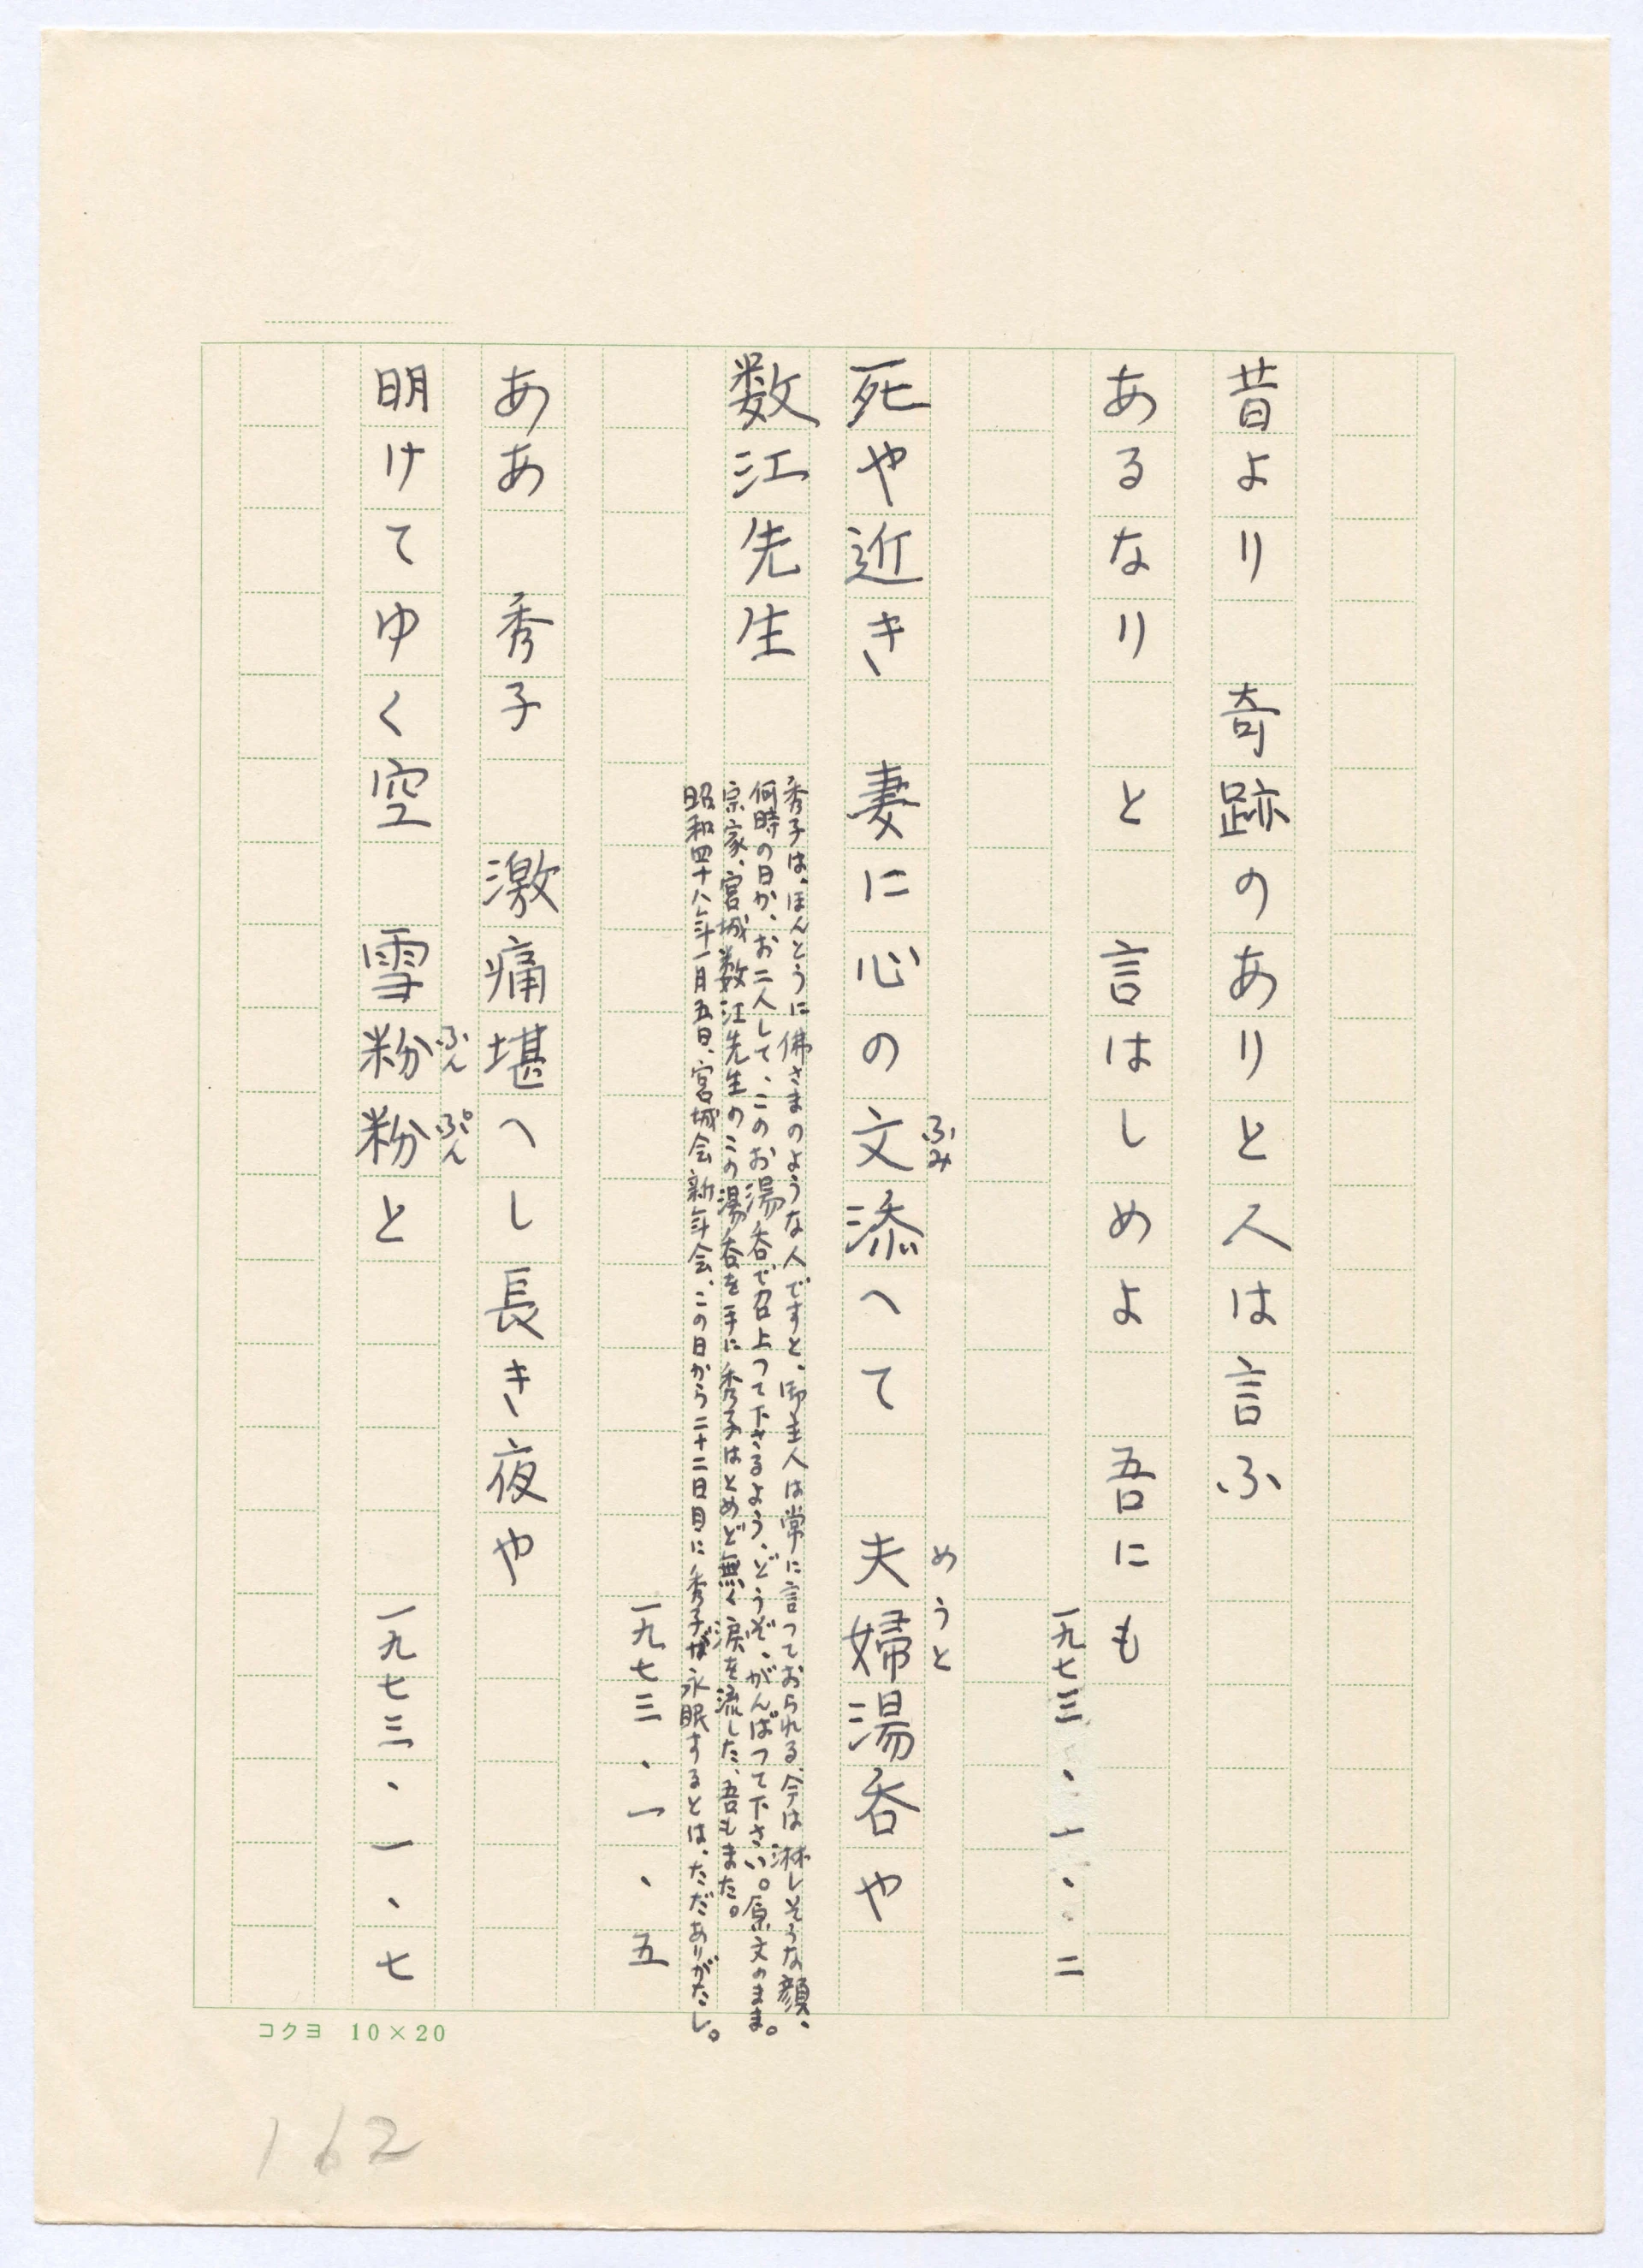 昔より　奇跡のありと人は言ふ
あるなり　と　言はしめよ　吾にも
一九七三、一、二
死や近き　妻に心の文添へて　夫婦湯呑や
ふみ
めうと
数江先生
秀子は、ほんとうに佛さまのような人ですと、御主人は常に言つておられる、今は淋しそうな顔、
何時の日か、お二人して、このお湯呑で召上つて下さるよう、どうぞ、がんばつて下さい。原文のまま。
宗家、宮城数江先生のこの湯呑を手に秀子はとめど無く涙を流した、吾もまた。
昭和四十八年一月五日、宮城会新年会、この日から二十二日目に秀子が永眠するとは、ただありがたし。
一九七三、一、五
ああ　秀子　激痛堪へし長き夜や
明けてゆく空　雪粉粉と
ふん
ぷん
一九七三、一、七
コクヨ 10×20
162